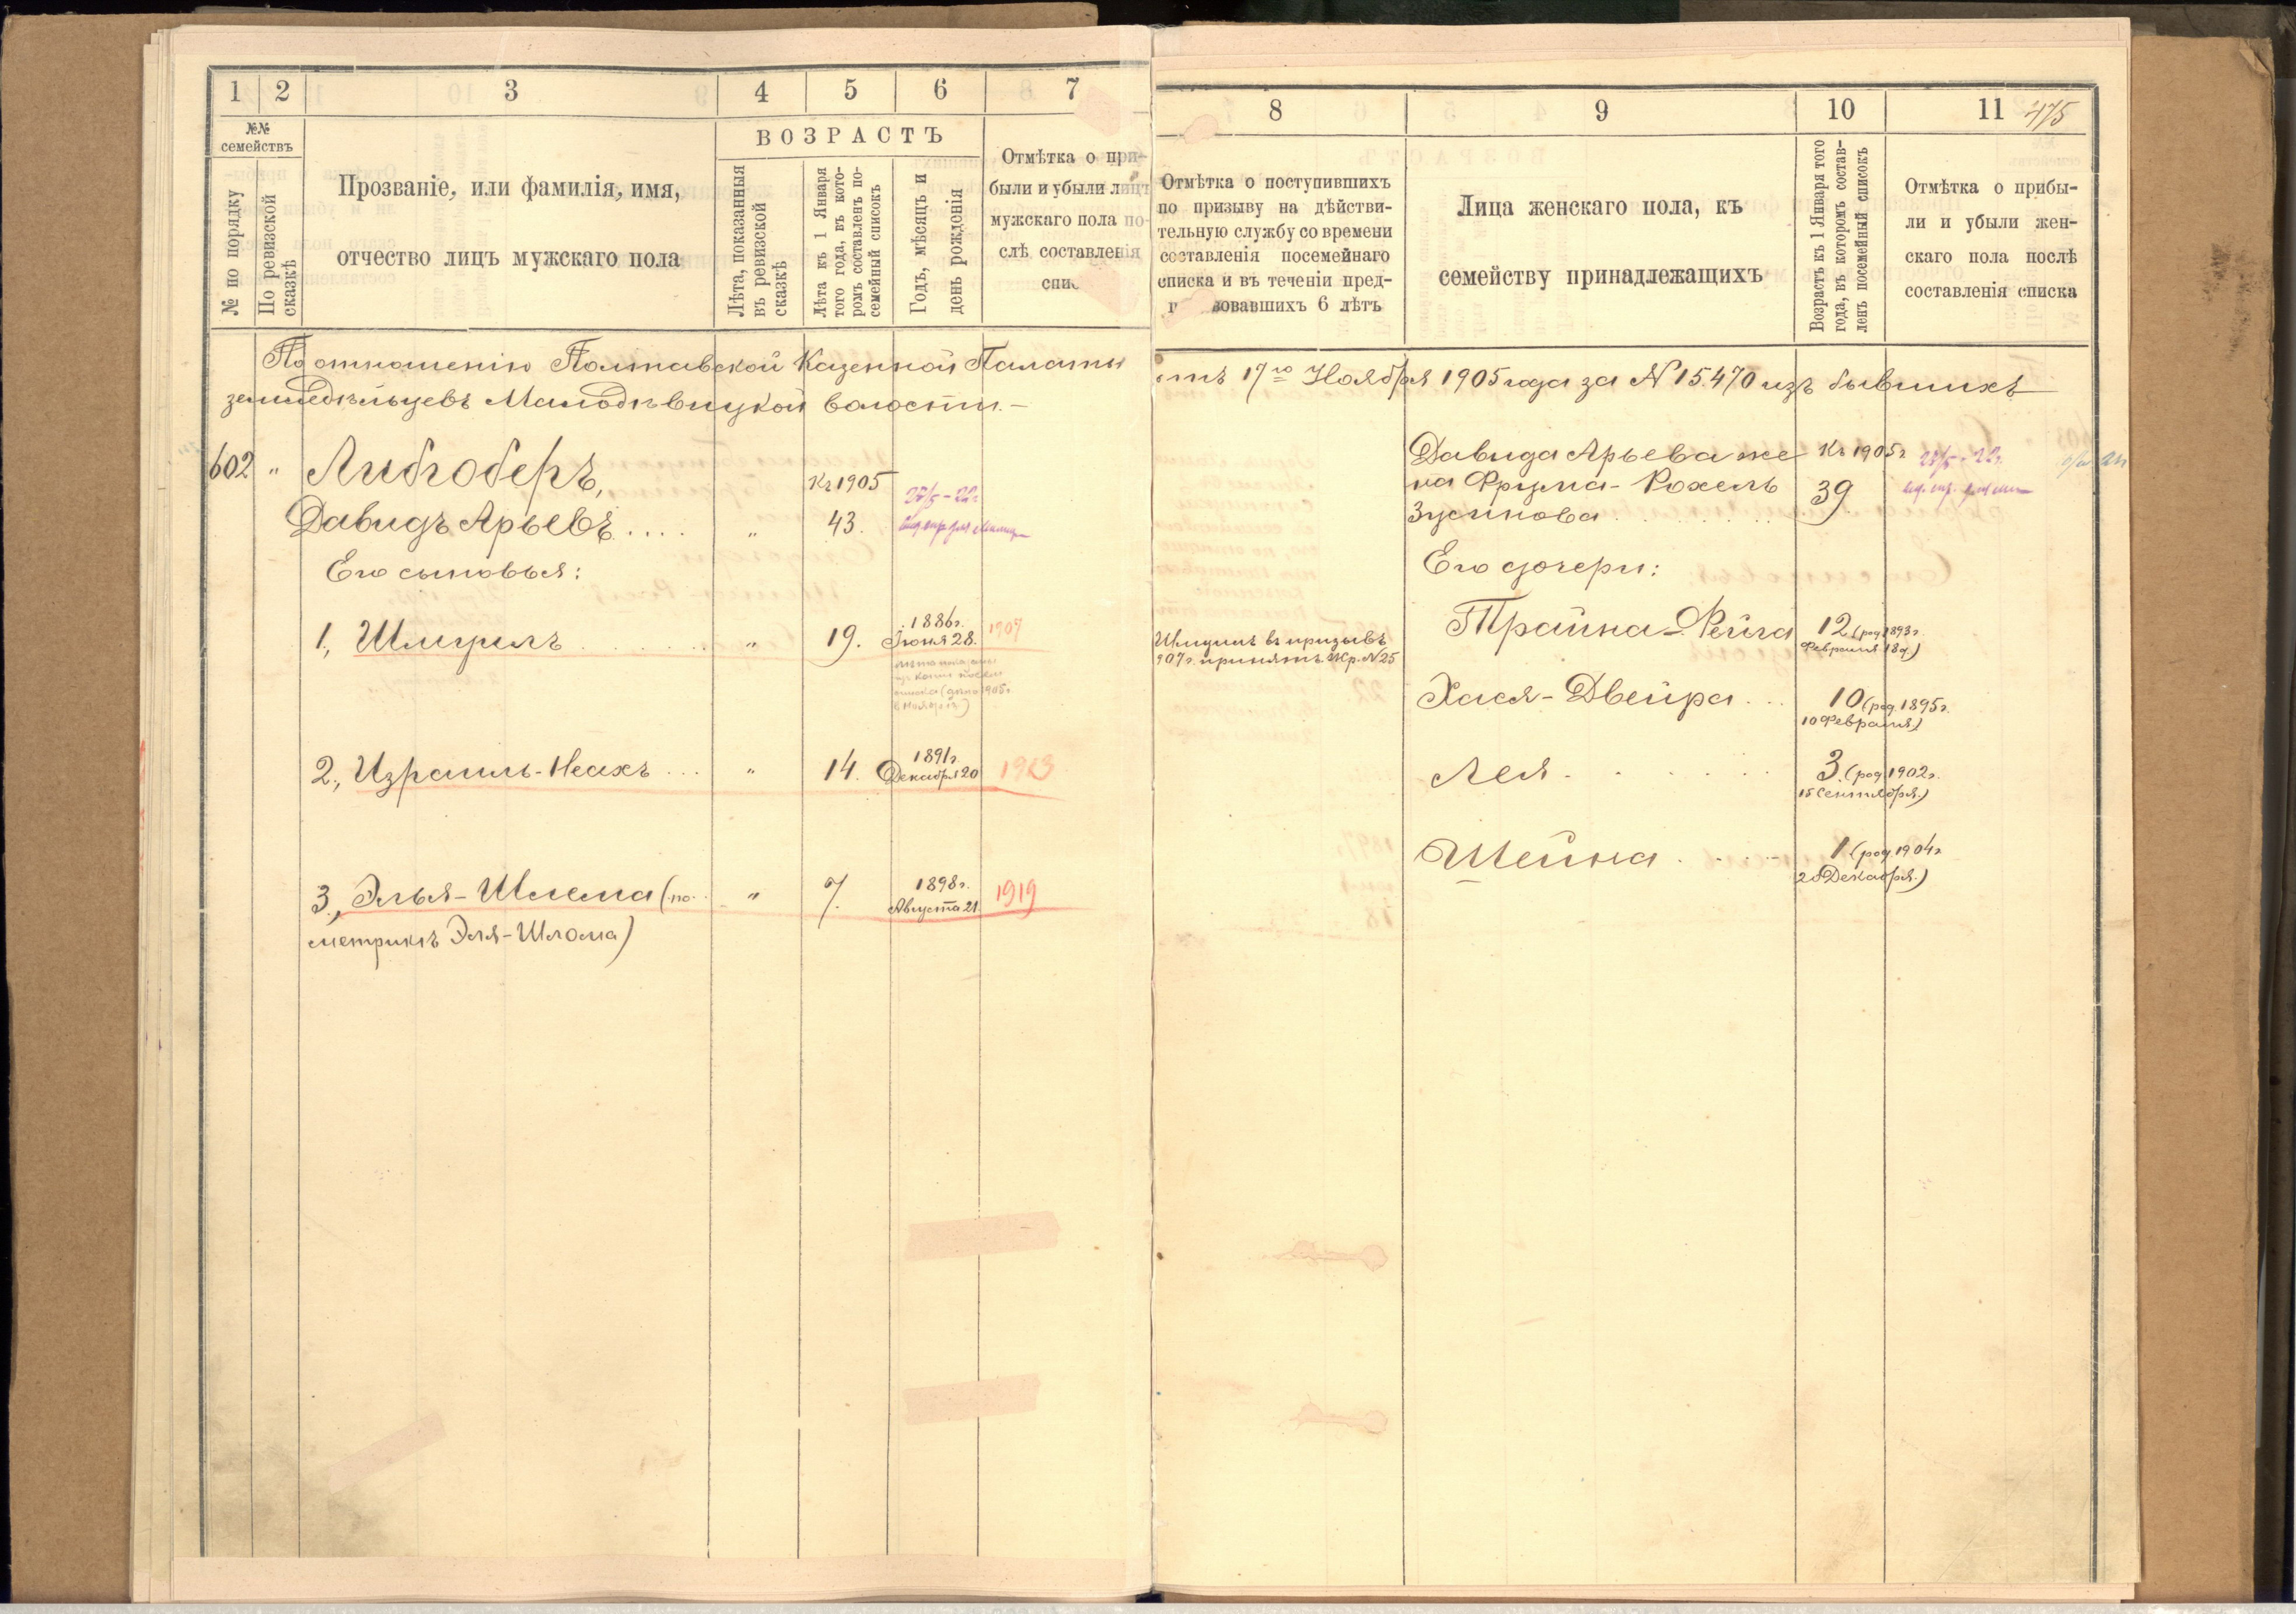 1 2 3 4 5 6 7
№№ семействъ
№ по порядку
По ревизской сказкѣ
Прозваніе, или фамилія, имя,
отчество лицъ мужскаго пола
ВОЗРАСТЪ
Лѣта, показанныя
въ ревизской
сказкѣ
Лѣта къ 1 Января
того года, въ кото-
ромъ составленъ по-
семейный списокъ
Годъ, мѣсяцъ и
день рожденія
Отмѣтка о при-
были и убыли лицъ
мужскаго пола по-
слѣ составленія
спис
По отношенію Полтавской Казенной Палаты
земледѣльцевъ Малодѣвицкой волости.—
602 " Либгоберъ,
Къ 1905
Давидъ Арьевъ .... " 43.
27/5-22г.
Его сыновья:
1., Шмуилъ " 19. 1886г. Іюня 28. 1907
2., Израиль-Ноахъ ... " 14. 1891г. Декабря 20 1913
3., Элья-Шлема (по " 7. 1898г. Августа 21. 1919
метрикѣ Эля-Шлома)
8 9 10 11
475
Отмѣтка о поступившихъ
по призыву на дѣйстви-
тельную службу со времени
составленія посемейнаго
списка и въ теченіи пред-
вовавшихъ 6 лѣтъ
Лица женскаго пола, къ
семейству принадлежащихъ
Возрастъ къ 1 Января того
года, въ которомъ состав-
ленъ посемейный списокъ
Отмѣтка о прибы-
ли и убыли жен-
скаго пола послѣ
составленія списка
отъ 17го Ноября 1905 года за N 15.470 изъ бывшихъ
Давида Арьева же-
на Фрума-Рохель
Зусинова
Къ 1905г
39
27/5-22г.
Его дочери:
Шмуилъ въ призывъ
907г. принятъ. Жр. N 25
Трайна-Фейга 12 (род. 1893г.
Февраля 18 д.)
Хася-Двейра ... 10 (род. 1895г.
10 Февраля)
Лея 3. (род. 1902г.
15 Сентября.)
Шейна 1 (род. 1904г
Декабря.)